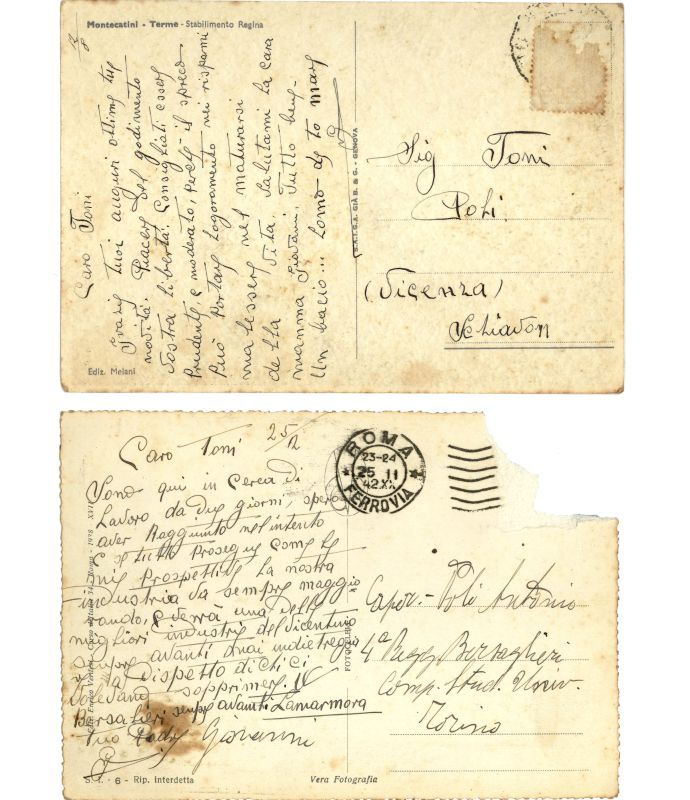 Montecatini - Terme - Stabilimento Regina
12/8
Caro Toni
Grazie tuoi auguri ottime tue
novità. Piacere del godimento
vostra libertà. Consigliati essere
Prudente, e moderato, perché il spreco
Può Portare logoramento nei risparmi
ma lessere nel maturarsi
della Vita. Salutami la cara
mamma Giovani, Tutto bene
Un bacio... Lomo de to mare
Ediz. Melani
S.A.I.G.A. GIÀ B. & G. - GENOVA
Sig Toni
Poli
(Vicenza)
Schiavon
Caro Toni 25/11
Sono qui in cerca di
Lavoro da due giorni, spero
aver Raggiunto nel intento
Se tutto Prosegue come le
mie Prospettive la nostra
industria va sempre maggio
rando, e verrà una delle
migliori industrie del Vicentino
sempre avanti mai indietreggia
a dispetto di chi ci
voleva sopprimere. W
Bersalieri sempre avanti Lamarmora
Tuo Giovanni
ROMA
23-24
25 11
42.XX
FERROVIA
Caper. - Poli Antonio
4ª Regg Bersaglieri
Comp. Stud. Univ.
Torino
S. I. - 6 - Rip. Interdetta
Vera Fotografia